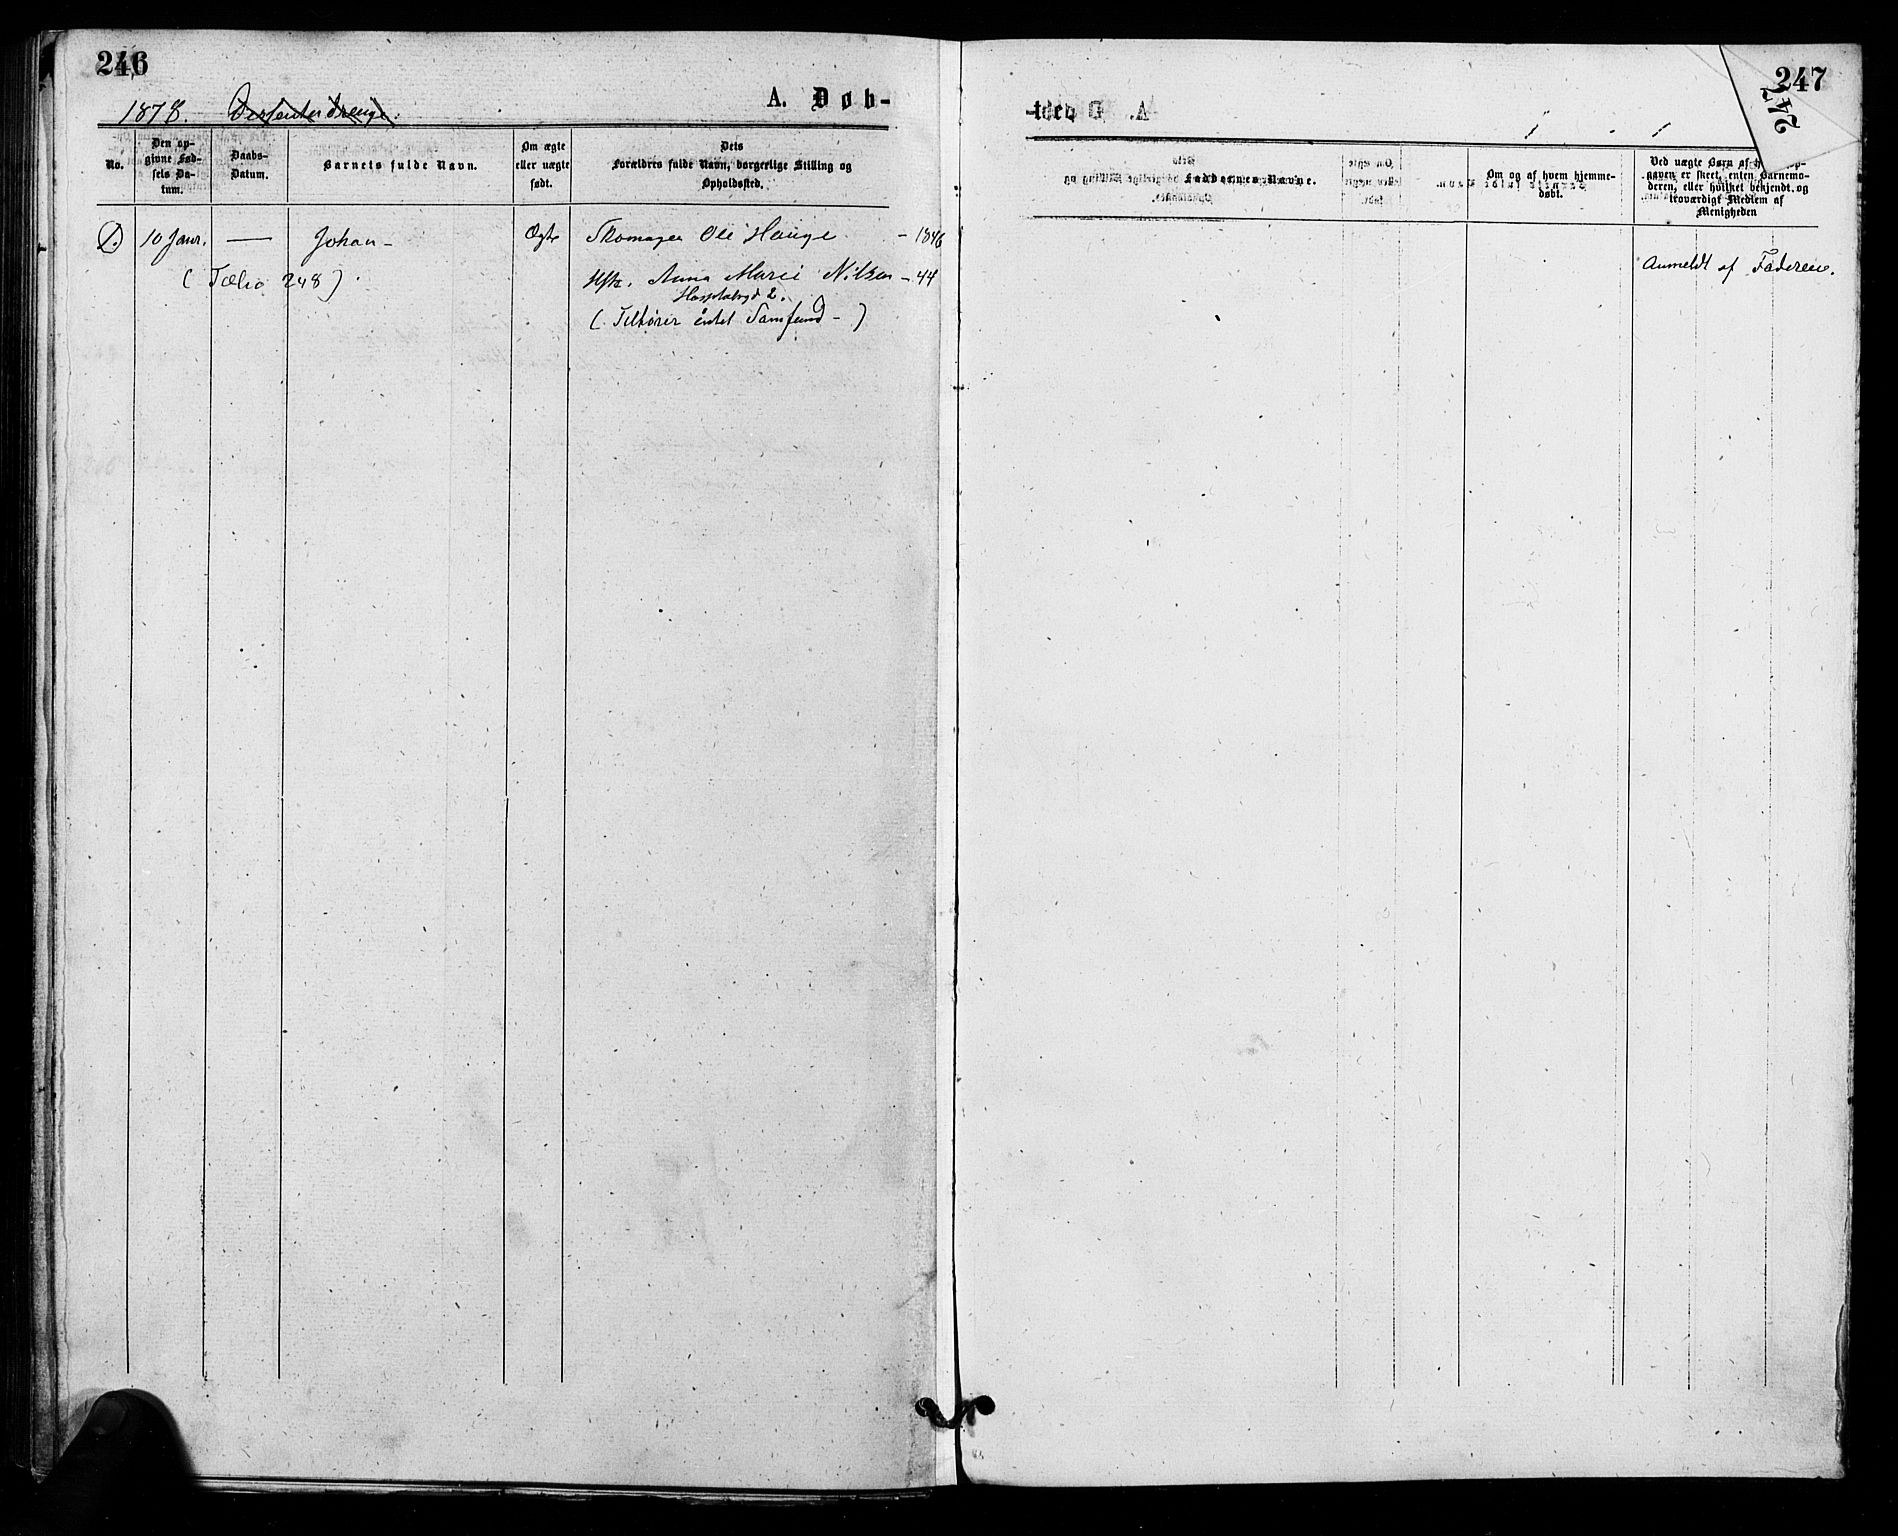 246
1878. Dissenter drenge.
A. Døb-
No.
Den op-
givne Fød-
sels Da-
tum.
Daabs-
Datum.
Barnets fulde Navn.
Om ægte
eller uægte
født.
Dets
Forældres fulde Navn, borgerlige Stilling og
Opholdssted.
1. 10 Janr. — Johan - Ægte Skomager Ole Hauge - 1846
( Folio 248 ) Hstr. Anna Marie Nilsen - 44
2.
( Tilhører intet Samfund - )
247
247
Faddernes Navne.
Om og af hvem hjemme-
døbt.
Ved uægte Børn af hvem Op-
gaven er skeet, enten Barnemo-
deren, eller hvilket bekjendt og
troværdigt Medlem af
Menigheden
Anmeldt af Faderen.